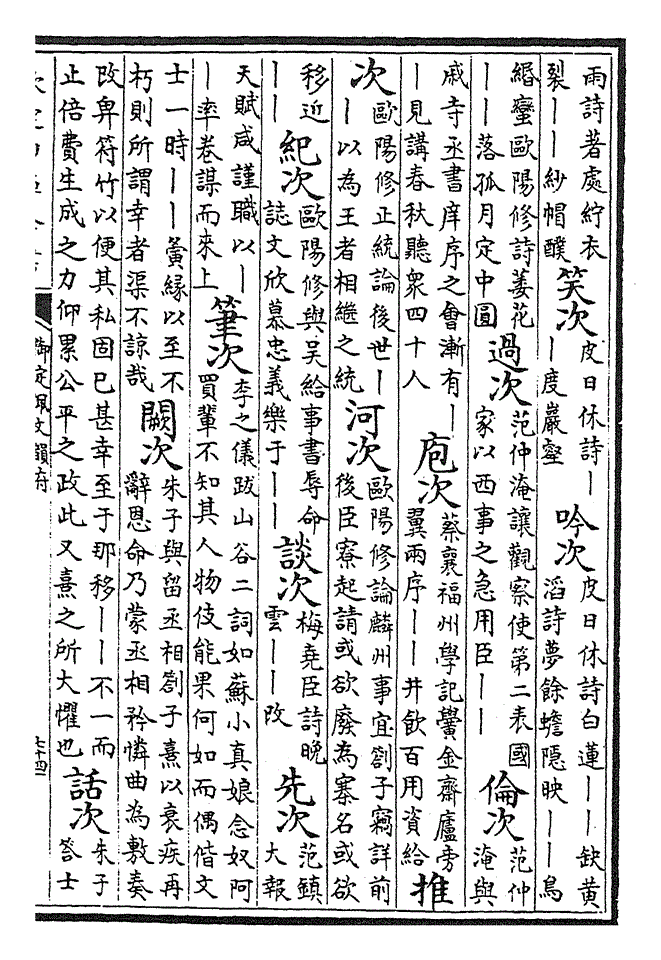 雨詩著處紵衣裂――紗帽醭 笑次 皮日休詩――度巖壑 吟次 皮日休詩白蓮――缺黄滔詩夢餘蟾隱映――烏
緡蠻歐陽修詩萎花――落孤月定中圓 過次 范仲淹讓觀察使第二表國家以西事之急用臣―― 倫次 范仲淹與
戚寺丞書庠序之會漸有――見講春秋聽衆四十人 庖次 蔡襄福州學記黌金齋廬旁翼兩序――井飲百用資給 推
次 歐陽修正統論後世――以為王者相繼之統 河次 歐陽修論麟州事宜劄子竊詳前後臣寮起請或欲廢為寨名或欲
移近―― 紀次 歐陽修與吴給事書辱命誌文欣慕忠義樂于―― 談次 梅堯臣詩晚雲――改 先次 范鎮大報
天賦咸謹職以――率卷謀而來上 筆次 李之儀跋山谷二詞如蘇小真娘念奴阿買輩不知其人物伎能果何如而偶偕文
士一時――夤緣以至不朽則所謂幸者渠不諒哉 闕次 朱子與留丞相劄子熹以衰疾再辭恩命乃蒙丞相矜憐曲為敷奏
改畀符竹以便其私固已甚幸至于那移――不一而止倍費生成之力仰累公平之政此又熹之所大懼也 話次 朱子答士
御定佩文韻府
七十四